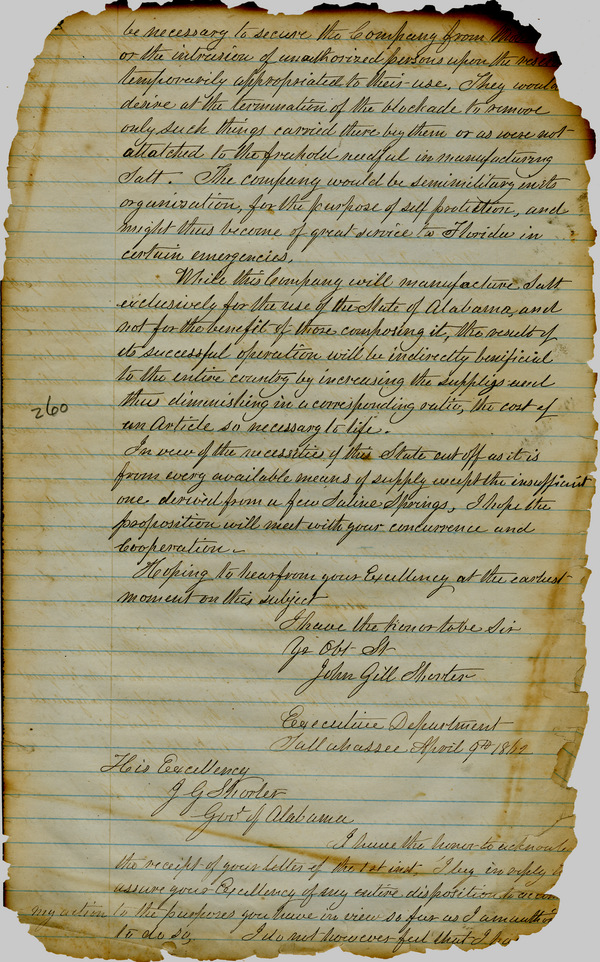 be necessary to secure the Company from
or the intrusion of unauthorized persons upon the
temporarily appropriated to their use, They would
desire at the termination of the blockade to remove
only such things carried there by them or as were not
attatched to the freehold needful in manufacturing
Salt. The company would be semimilitary in its
organization, for the purpose of self protection, and
might thus become of great service to Florida in
certain emergencies.
While this Company will manufacture Salt
exclusively for the use of the State of Alabama, and
not for the benefit of those composing it, the result of
its successful operation will be indirectly benificial
to the entire country by increasing the supplies and
thus diminishing in a corresponding ratio, the cost of
an Article so necessary to life.
260
In view of the necessities of this State cut off as it is
from every available means of supply except the insufficient
one derived from a few Saline Springs, I hope the
proposition will meet with your concurrence and
Cooperation.
Hoping to hear from your Excellency at the earliest
moment on this subject
I have the honor to be Sir
Yr Obt St
John Gill Shorter
Executive Department
Tallahassee April 9th 1862
His Excellency
J G Shorter
Govr of Alabama
I have the honor to acknowle
the receipt of your letter of the 1st inst. I beg in reply to
assure your Excellency of my entire disposition to
my action to the purposes you have in view so far as I am
to do so, I do not however feel that I